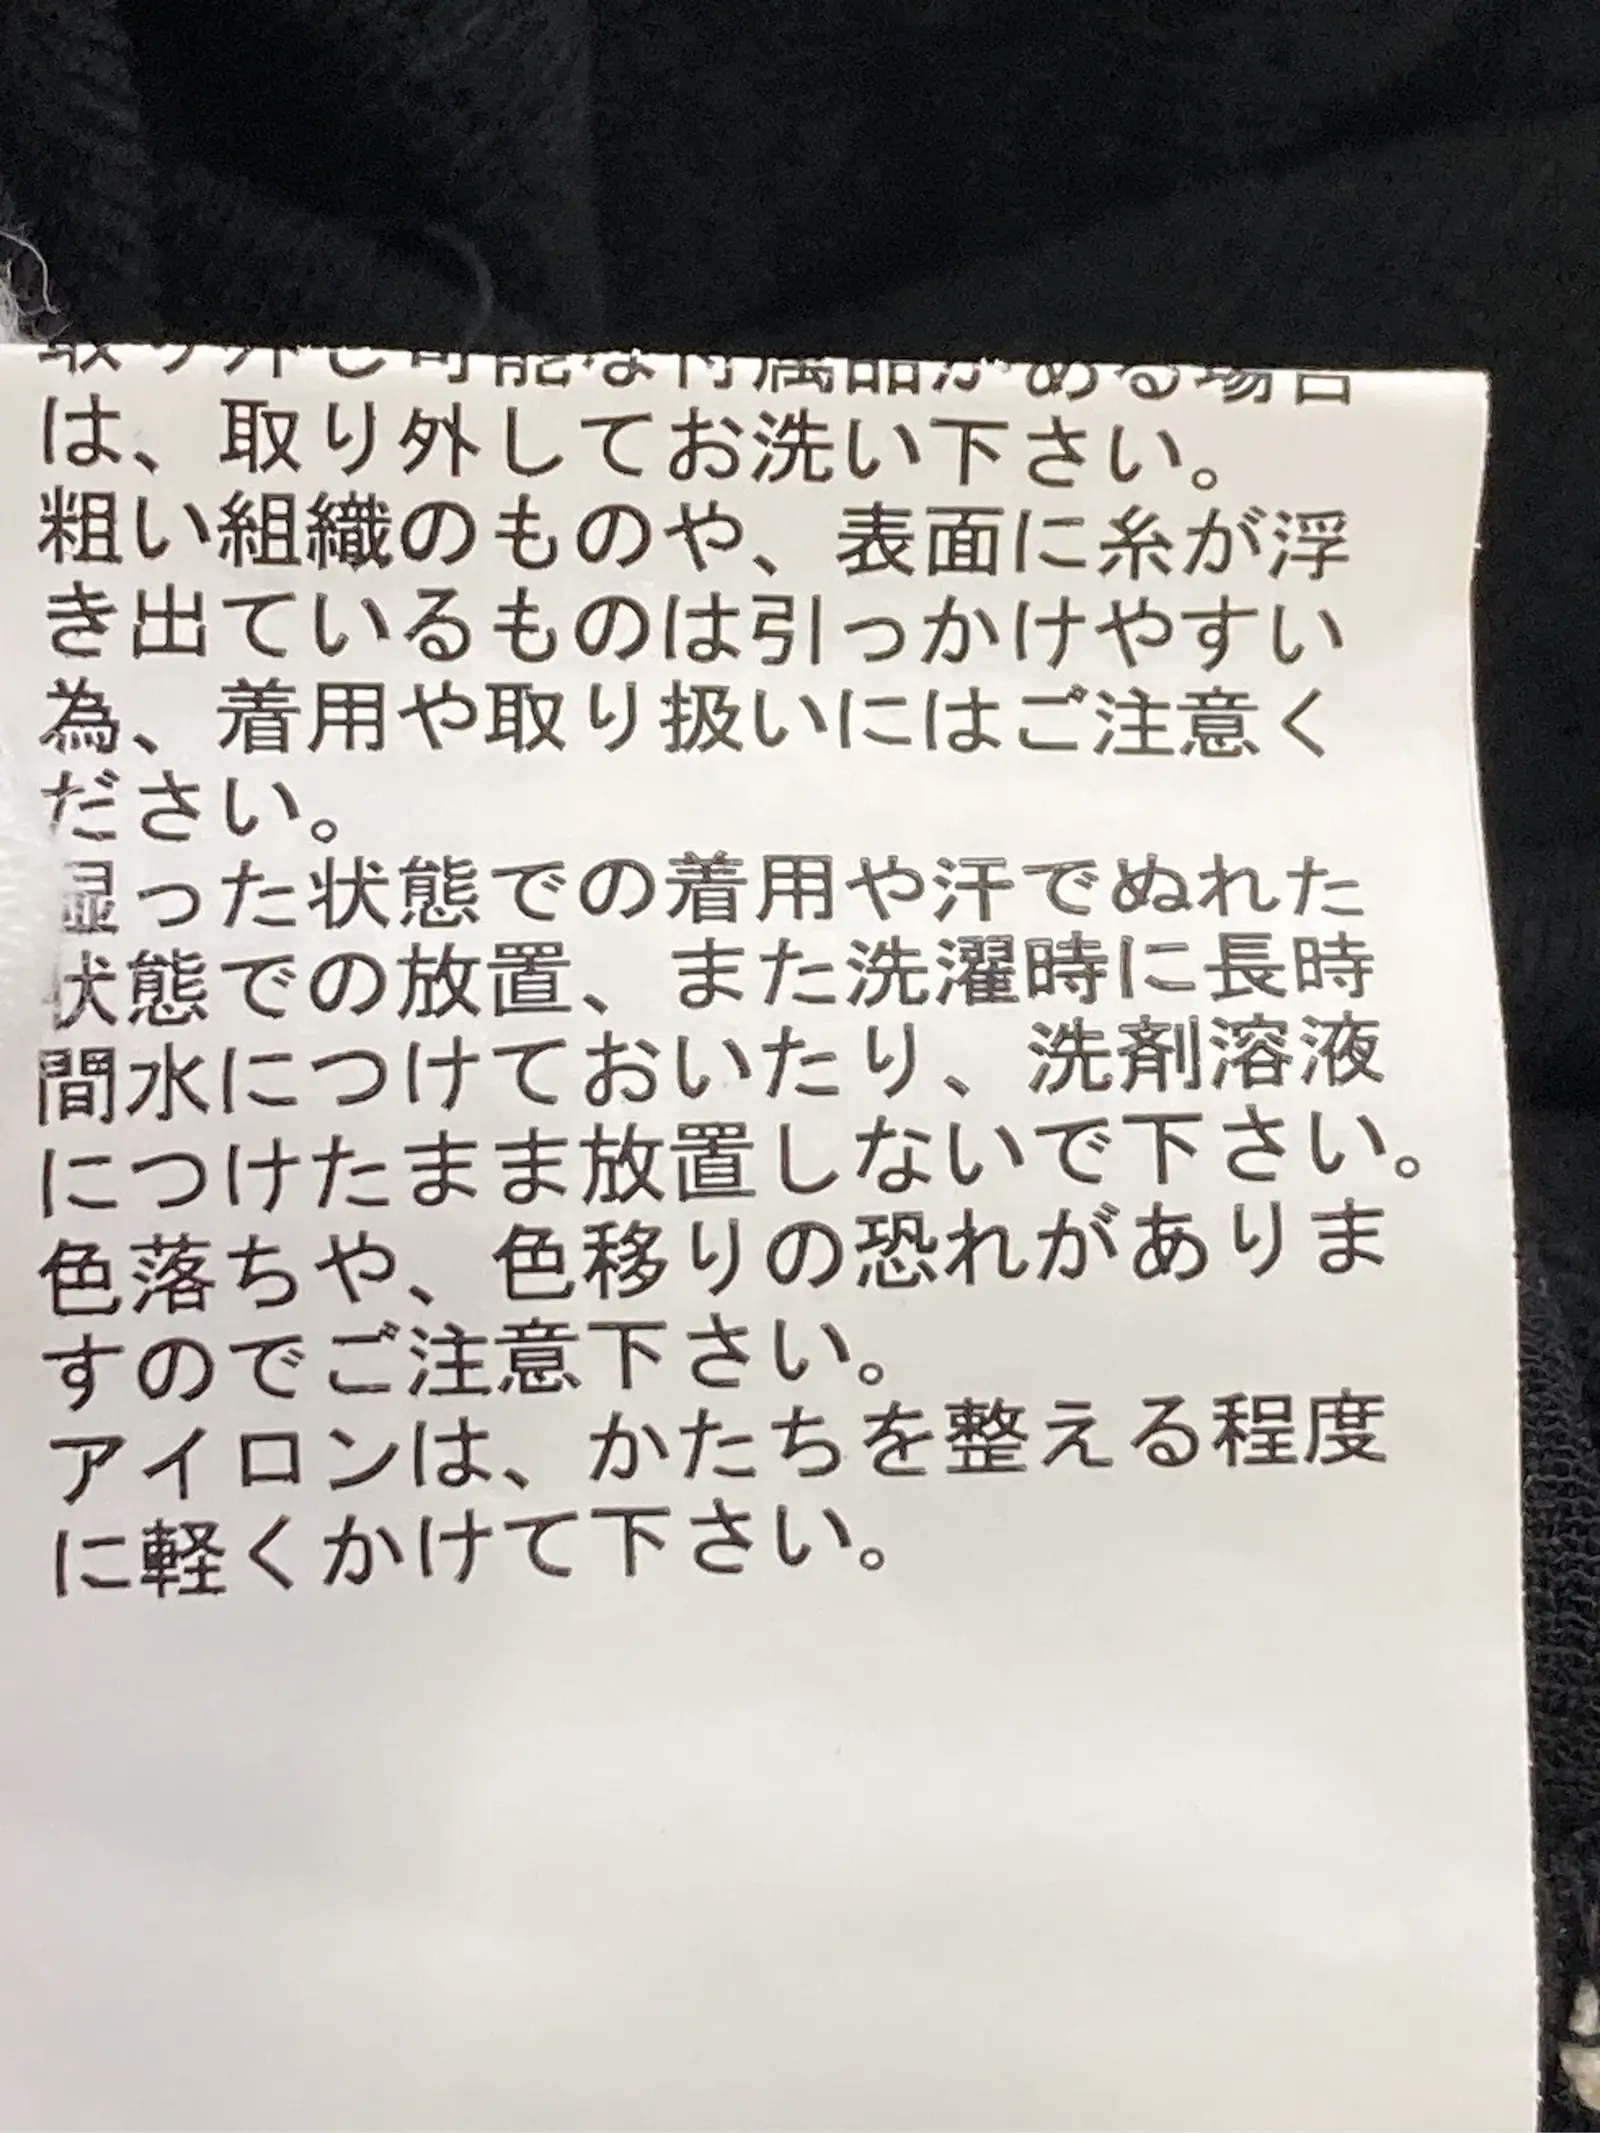 取り外し可能な付属品がある場合
は、取り外してお洗い下さい。
粗い組織のものや、表面に糸が浮
き出ているものは引っかけやすい
為、着用や取り扱いにはご注意く
ださい。
湿った状態での着用や汗でぬれた
状態での放置、また洗濯時に長時
間水につけておいたり、洗剤溶液
につけたまま放置しないで下さい。
色落ちや、色移りの恐れがありま
すのでご注意下さい。
アイロンは、かたちを整える程度
に軽くかけて下さい。